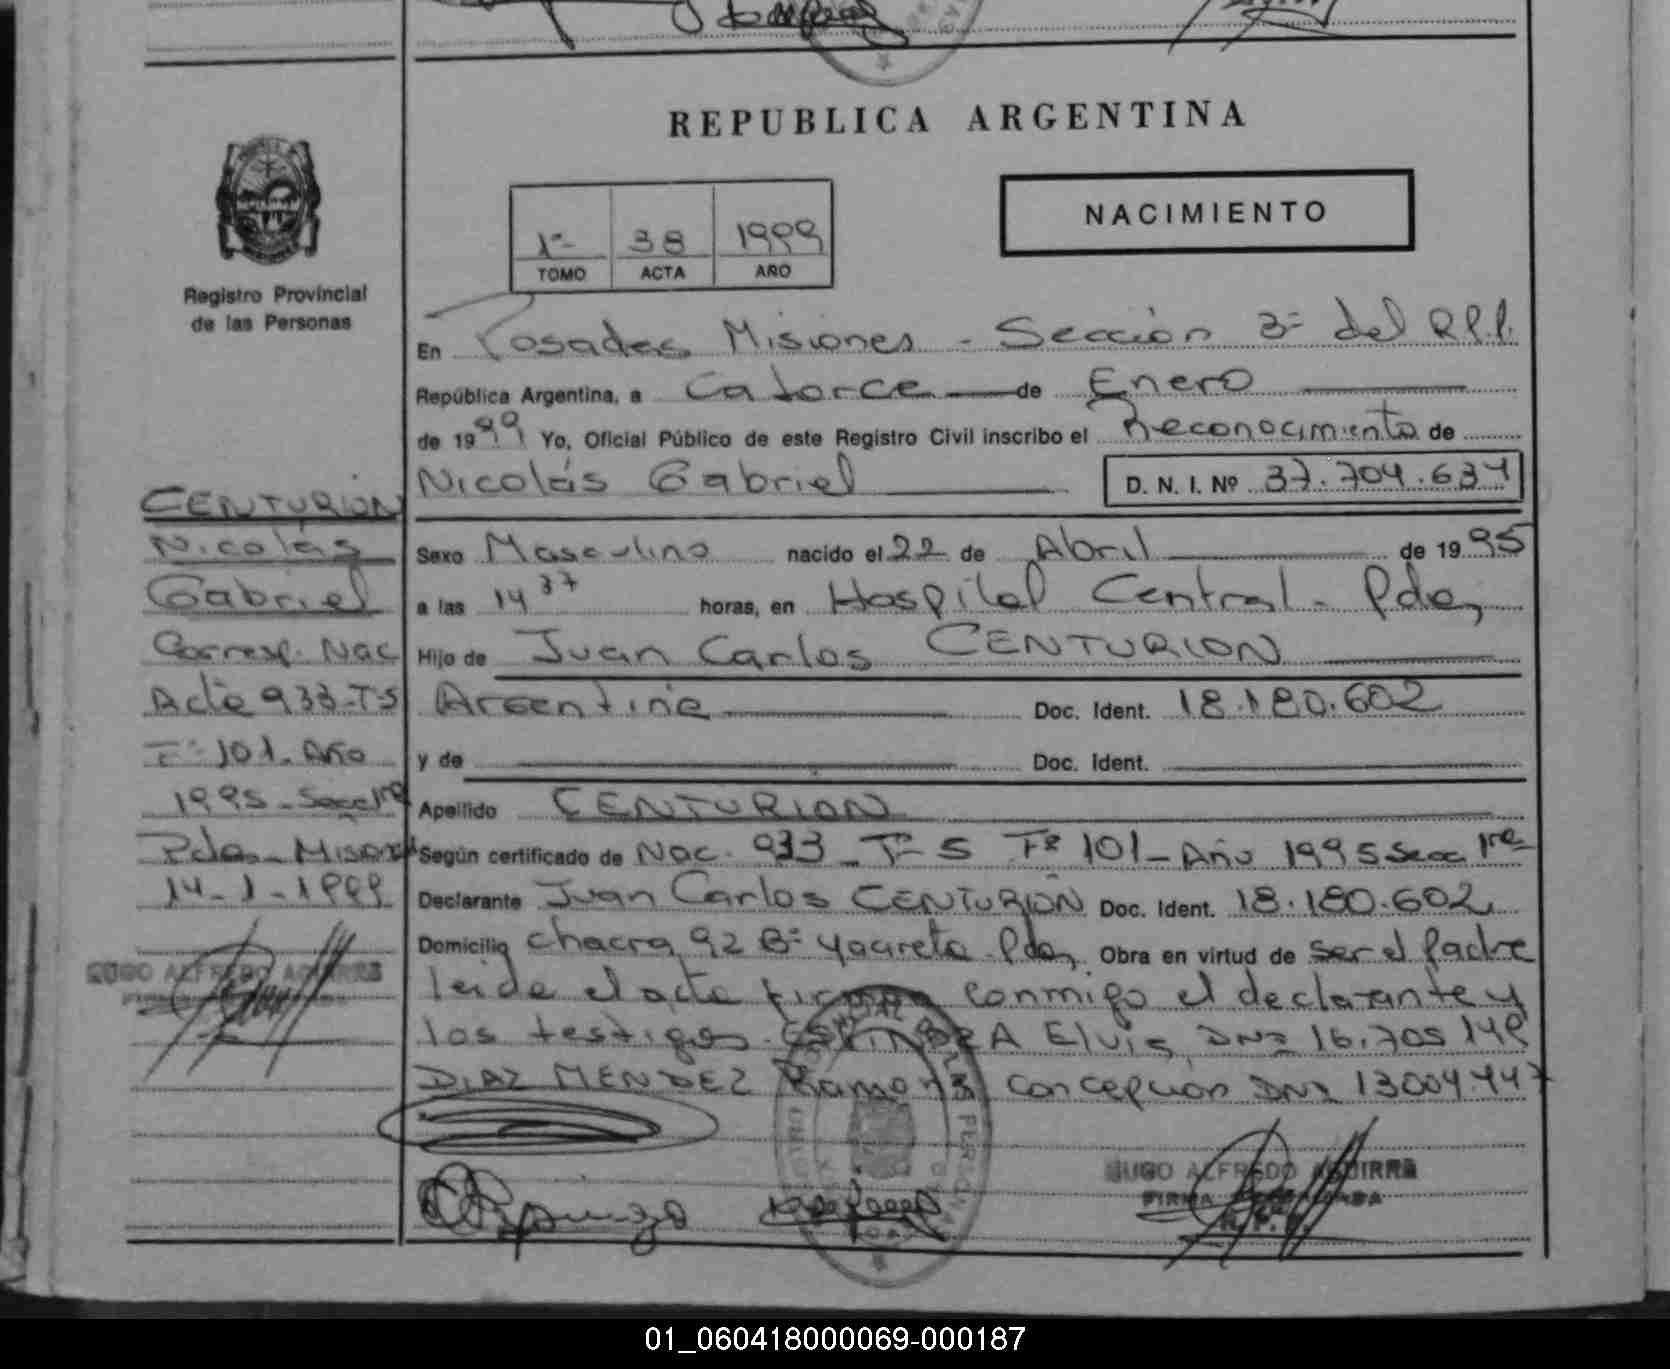 REPUBLICA ARGENTINA
NACIMIENTO
1º 38 1999
TOMO ACTA AÑO
Registro Provincial
de las Personas
En Posadas Misiones - Sección 3º del R.P.P.
República Argentina, a Catorce de Enero
de 1999 Yo, Oficial Público de este Registro Civil inscribo el Reconocimiento de
Nicolás Gabriel D. N. I. Nº 37.704.634
Sexo Masculino nacido el 22 de Abril de 1995
a las 14 37 horas, en Hospital Central - Pdas,
Hijo de Juan Carlos CENTURION
Argentina Doc. Ident. 18.180.602
y de Doc. Ident.
Apellido CENTURION
Según certificado de Nac. 933 - Tº 5 Fº 101 - Año 1995 Secc 1ra
Declarante Juan Carlos CENTURION Doc. Ident. 18.180.602
Domicilio chacra 92 Bº Yacireta Pdas, Obra en virtud de ser el padre
leida el acta firman conmigo el declarante y
los testigos ESPINDORA Elvis, DNI 16.705.149
DIAZ MENDEZ Ramona Concepción DNI 13004447
CENTURION
Nicolás
Gabriel
Corresp. Nac
Acta 933-T-5
Fº 101 - Año
1995 - Secc 1ra
Pdas - Misiones
14-1-1999
HUGO ALFREDO AGUIRRE
HUGO ALFREDO AGUIRRE
FIRMA AUTORIZADA
R.P.P.
01_060418000069-000187